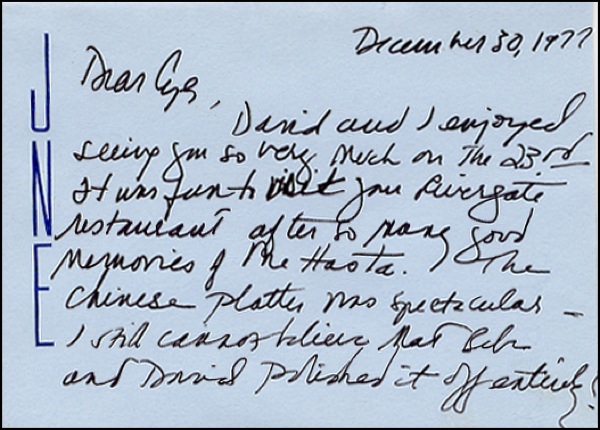 December 30, 1977
Dear
David and I enjoyed
seeing you so very much on the 23rd
It was fun to visit your Rivergate
restaurant after so many good
memories of the Hasta. The
Chinese platter was spectacular –
I still cannot believe that
and David polished it off entirely!
JNE